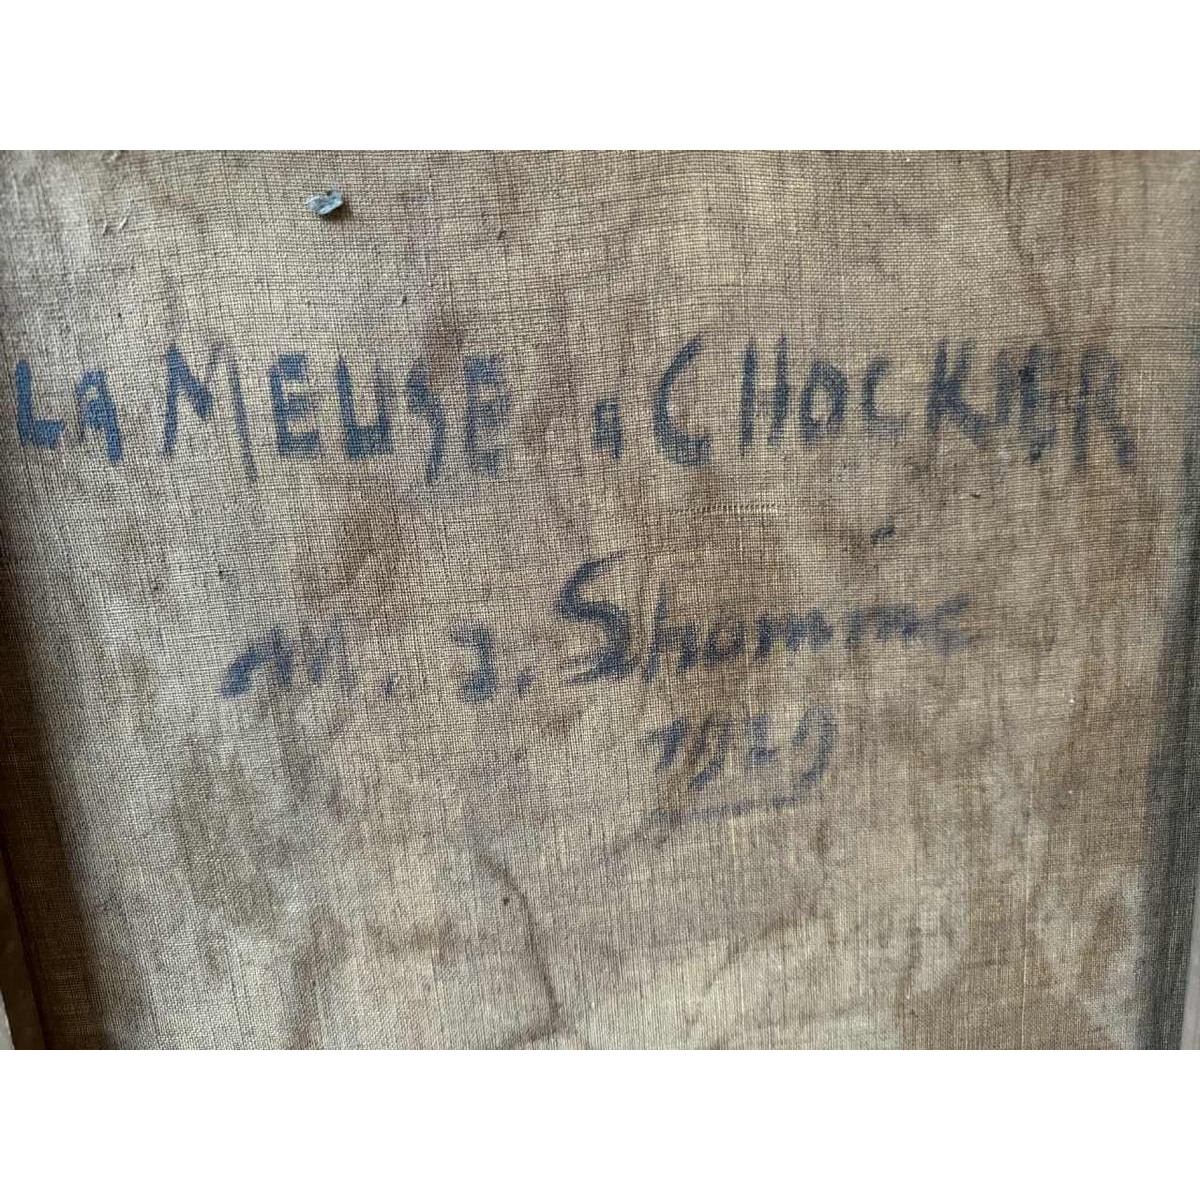 LA MEUSE a CHOCKIER
M. J. Shommé
1929